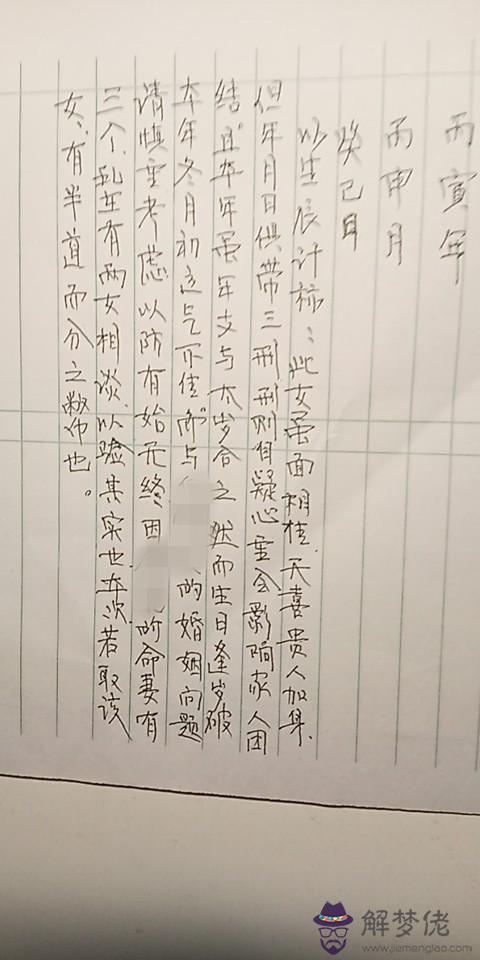 丙寅年
丙申月
癸巳日
以生辰计标：此女虽面相佳.天喜贵人加身.
但年月日俱带三刑刑则有疑心重会影响家人团
结且本年虽年支与太岁合之然而生日逢岁破
本年冬月初运气不佳 与 的婚姻问题
请慎重考虑以防有始无终因 所命妻有
三个.现在有两女相谈.以验其实也本次.若取该
女.有半道而分之弊也。
解梦佬
www.jiemenglao.com